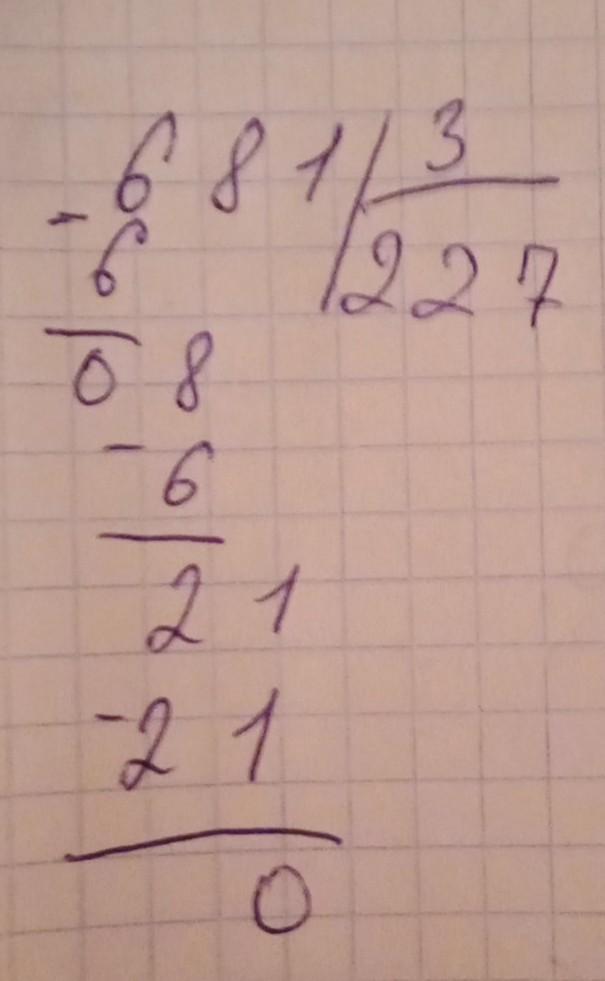 681 3
-6 227
08
-6
21
-21
0